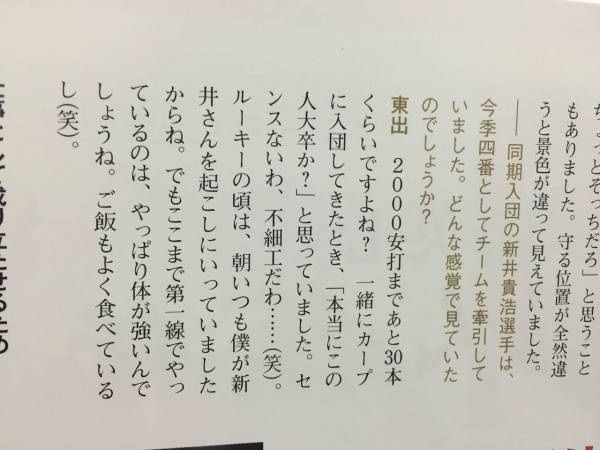 ちょっとそっちだろ」と思うこと
もありました。守る位置が全然違
うと景色が違って見えていました。
―― 同期入団の新井貴浩選手は、
今季四番としてチームを牽引して
いました。どんな感覚で見ていた
のでしょうか?
東出　2000安打まであと30本
くらいですよね?　一緒にカープ
に入団してきたとき、「本当にこの
人大卒か?」と思っていました。セ
ンスないわ、不細工だわ……(笑)。
ルーキーの頃は、朝いつも僕が新
井さんを起こしにいっていました
からね。でもここまで第一線でやっ
ているのは、やっぱり体が強いんで
しょうね。ご飯もよく食べている
し(笑)。